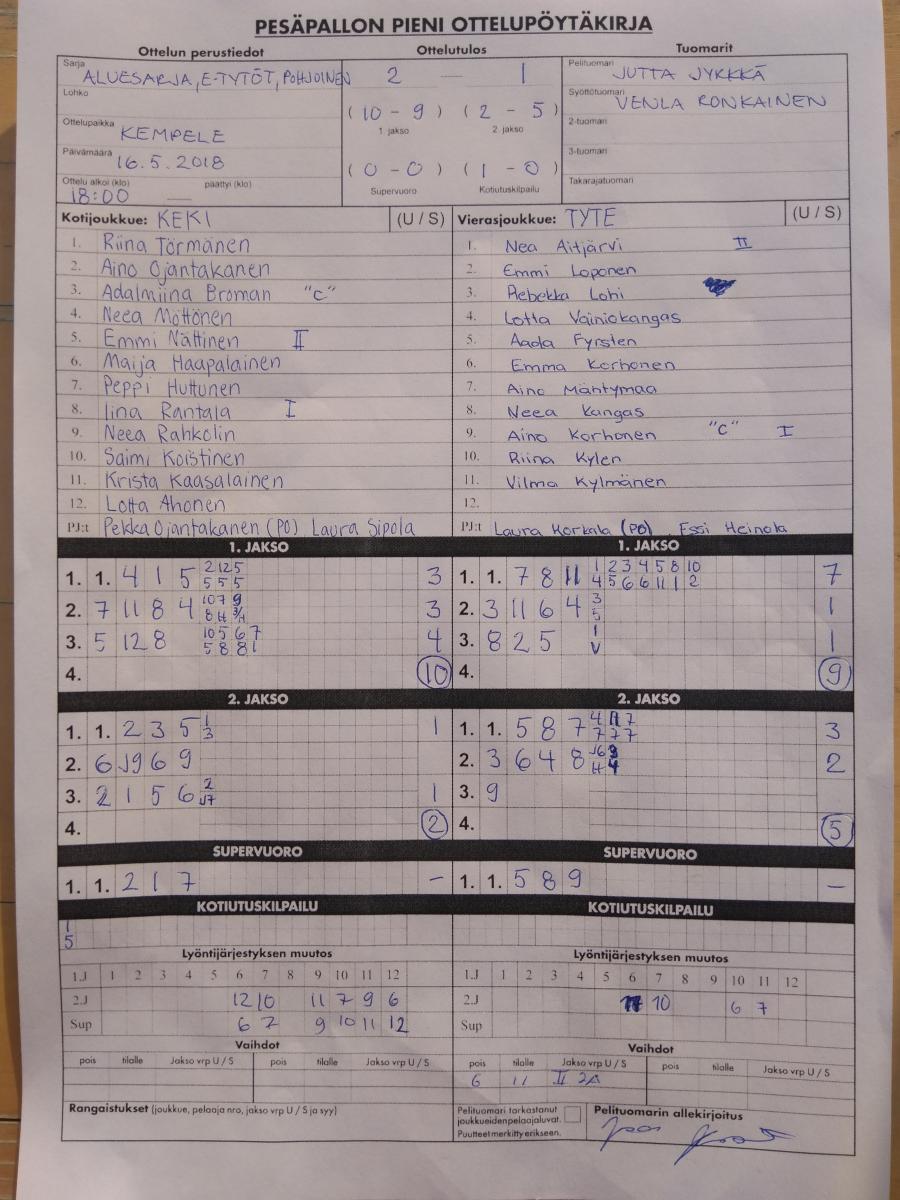 PESÄPALLON PIENI OTTELUPÖYTÄKIRJA
Ottelun perustiedot Ottelutulos Tuomarit
Sarja ALUESARJA, E-TYTÖT, POHJOINEN
Lohko
Ottelupaikka KEMPELE
Päivämäärä 16.5.2018
Ottelu alkoi (klo) 18:00 päättyi (klo) —
2 — 1
(10 - 9) (2 - 5)
1. jakso 2. jakso
(0 - 0) (1 - 0)
Supervuoro Kotiutuskilpailu
Pelituomari JUTTA JYKKKÄ
Syöttötuomari VENLA RONKAINEN
2-tuomari
3-tuomari
Takarajatuomari
Kotijoukkue: KEKI (U / S)
1. Riina Törmänen
2. Aino Ojantakanen
3. Adalmiina Broman "C"
4. Neea Möttönen
5. Emmi Nättinen II
6. Maija Haapalainen
7. Peppi Huttunen
8. Iina Rantala I
9. Neea Rahkolin
10. Saimi Koistinen
11. Krista Kaasalainen
12. Lotta Ahonen
PJ:t Pekka Ojantakanen (PO) Laura Sipola
Vierasjoukkue: TYTE (U / S)
1. Nea Aitjärvi II
2. Emmi Loponen
3. Rebekka Lohi
4. Lotta Vainiokangas
5. Aada Fyrsten
6. Emma Korhonen
7. Aino Mäntymaa
8. Neea Kangas
9. Aino Korhonen "C" I
10. Riina Kylen
11. Vilma Kylmänen
12.
PJ:t Laura Horkala (PO) Essi Heinola
1. JAKSO
1. 1. 4 1 5 2 12 5 3
5 5 5
2. 7 11 8 4 10 7 9 3
3. 5 12 8 10 5 6 7 4
5 8 8 1
4. 10
1. JAKSO
1. 1. 7 8 11 1 2 3 4 5 8 10 7
4 5 6 6 11 1 2
2. 3 11 6 4 3 1
5
3. 8 2 5 1 1
V
4. 9
2. JAKSO
1. 1. 2 3 5 1 1
3
2. 6 9 6 9
3. 2 1 5 6 2 1
4. 2
2. JAKSO
1. 1. 5 8 7 4 7 3
7 7 7
2. 3 6 4 8 2
3. 9
4. 5
SUPERVUORO
1. 1. 2 1 7 –
SUPERVUORO
1. 1. 5 8 9 –
KOTIUTUSKILPAILU
1
5
KOTIUTUSKILPAILU
Lyöntijärjestyksen muutos
1.J 1 2 3 4 5 6 7 8 9 10 11 12
2.J 12 10 11 7 9 6
Sup 6 7 9 10 11 12
Lyöntijärjestyksen muutos
1.J 1 2 3 4 5 6 7 8 9 10 11 12
2.J 10 6 7
Sup
Vaihdot
pois tilalle Jakso vrp U / S pois tilalle Jakso vrp U / S
Vaihdot
pois tilalle Jakso vrp U / S pois tilalle Jakso vrp U / S
6 11 II 2A
Rangaistukset (joukkue, pelaaja nro, jakso vrp U / S ja syy)
Pelituomari tarkastanut
joukkueiden pelaajaluvat.
Puutteet merkitty erikseen.
Pelituomarin allekirjoitus